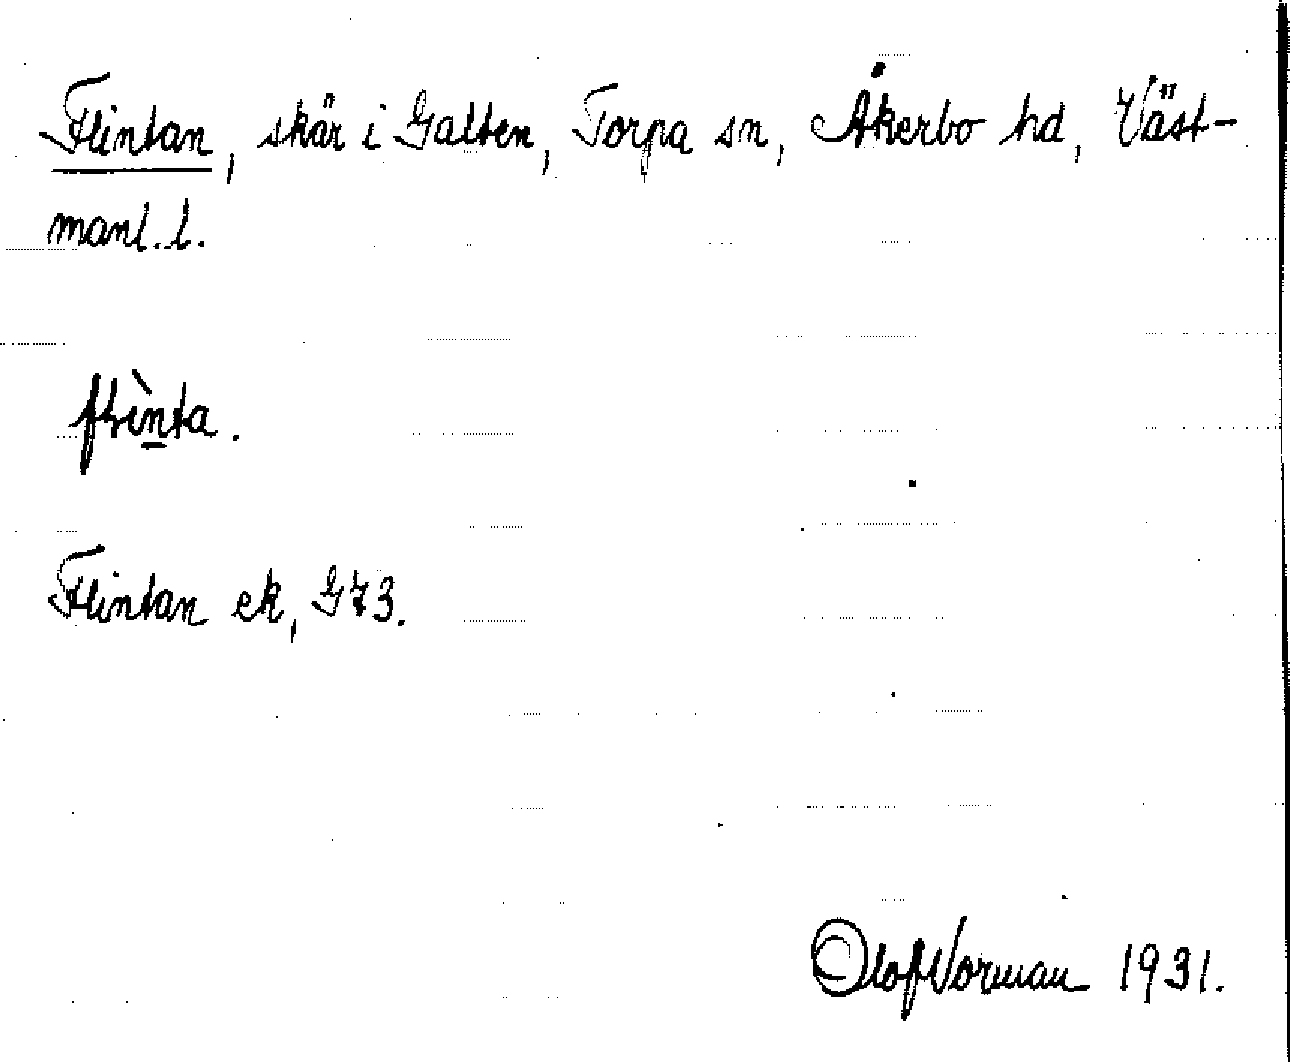 Flintan, skär i Galten, Torpa sn, Åkerbo hd, Väst-
manl. l.
flìn̲ta.
Flintan ek, G73.
Olof Norman 1931.